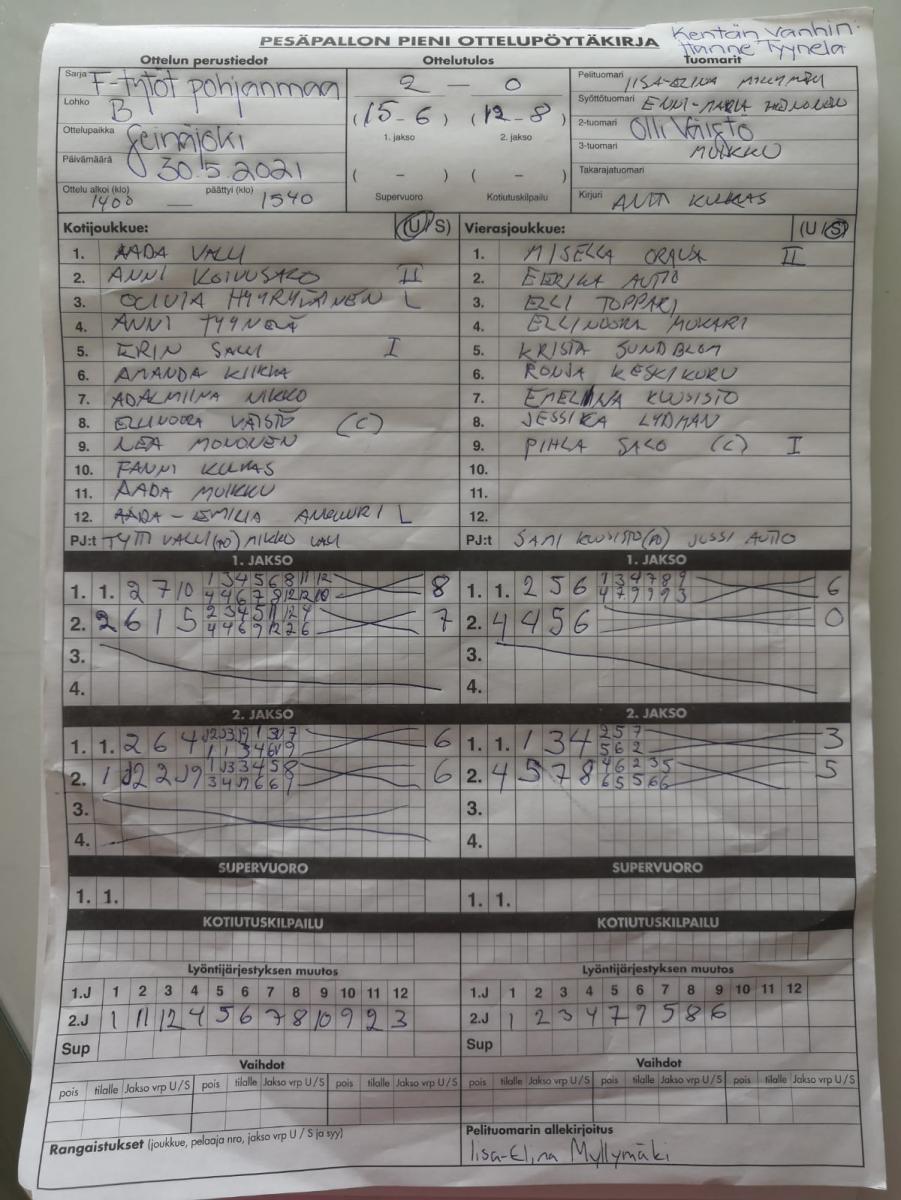 Kentän vanhin:
Hanne Tyynelä
PESÄPALLON PIENI OTTELUPÖYTÄKIRJA
Ottelun perustiedot Ottelutulos Tuomarit
Sarja F-tytöt pohjanmaa
Lohko B
Ottelupaikka Seinäjoki
Päivämäärä 30.5.2021
Ottelu alkoi (klo) 1400 päättyi (klo) 1540
2 - 0
(15 - 6) (12 - 8)
1. jakso 2. jakso
( - ) ( - )
Supervuoro Kotiutuskilpailu
Pelituomari IISA-ELINA MYLLYMÄKI
Syöttötuomari ENNI-MARIA
2-tuomari Olli Väistö
3-tuomari MUIKKU
Takarajatuomari
Kirjuri ANTTI KUKKAS
Kotijoukkue: (U/S)
1. AADA VALLI
2. ANNI KOIVUSALO II
3. OLIVIA HYYRYLÄINEN L
4. ANNI TYYNELÄ
5. ERIN SALLI I
6. AMANDA KIIKKA
7. ADALMIINA NIKKO
8. ELLINOORA VÄISTÖ (C)
9. NEA MONONEN
10. FANNI KUKKAS
11. AADA MUIKKU
12. AADA-EMILIA L
PJ:t TYTTI VALLI (PJ) MIKKO VALLI
Vierasjoukkue: (U/S)
1. MISELLA ORAVA II
2. EERIKA AUTIO
3. ELLI TOPPARI
4. ELLINOORA MUKARI
5. KRISTA SUNDBLOM
6. RONJA KESKIKURU
7. EMELIINA KUUSISTO
8. JESSIKA LYDMAN
9. PIHLA SALO (C) I
10.
11.
12.
PJ:t SAMI KUUSISTO (PJ) JUSSI AUTIO
1. JAKSO 1. JAKSO
1. 1. 2 7 10 1 3 4 5 6 8 11 12 8
4 4 6 7 8 12 12 10
2. 2 6 1 5 2 3 4 5 11 12 4 7
4 4 6 9 12 2 6
3.
4.
1. 1. 2 5 6 1 3 4 7 8 9 6
4 7 9 9 9 3
2. 4 4 5 6 0
3.
4.
2. JAKSO 2. JAKSO
1. 1. 2 6 4 6
2. 1 6
3.
4.
1. 1. 1 3 4 2 5 7 3
5 6 2
2. 4 5 7 8 4 6 2 3 5 5
6 5 5 6 6
3.
4.
SUPERVUORO SUPERVUORO
1. 1. 1. 1.
KOTIUTUSKILPAILU KOTIUTUSKILPAILU
Lyöntijärjestyksen muutos Lyöntijärjestyksen muutos
1.J 1 2 3 4 5 6 7 8 9 10 11 12
2.J 1 11 12 4 5 6 7 8 10 9 2 3
Sup
1.J 1 2 3 4 5 6 7 8 9 10 11 12
2.J 1 2 3 4 7 9 5 8 6
Sup
Vaihdot Vaihdot
pois tilalle Jakso vrp U/S pois tilalle Jakso vrp U/S pois tilalle Jakso vrp U/S
pois tilalle Jakso vrp U/S pois tilalle Jakso vrp U/S pois tilalle Jakso vrp U/S
Rangaistukset (joukkue, pelaaja nro, jakso vrp U / S ja syy)
Pelituomarin allekirjoitus
Iisa-Elina Myllymäki